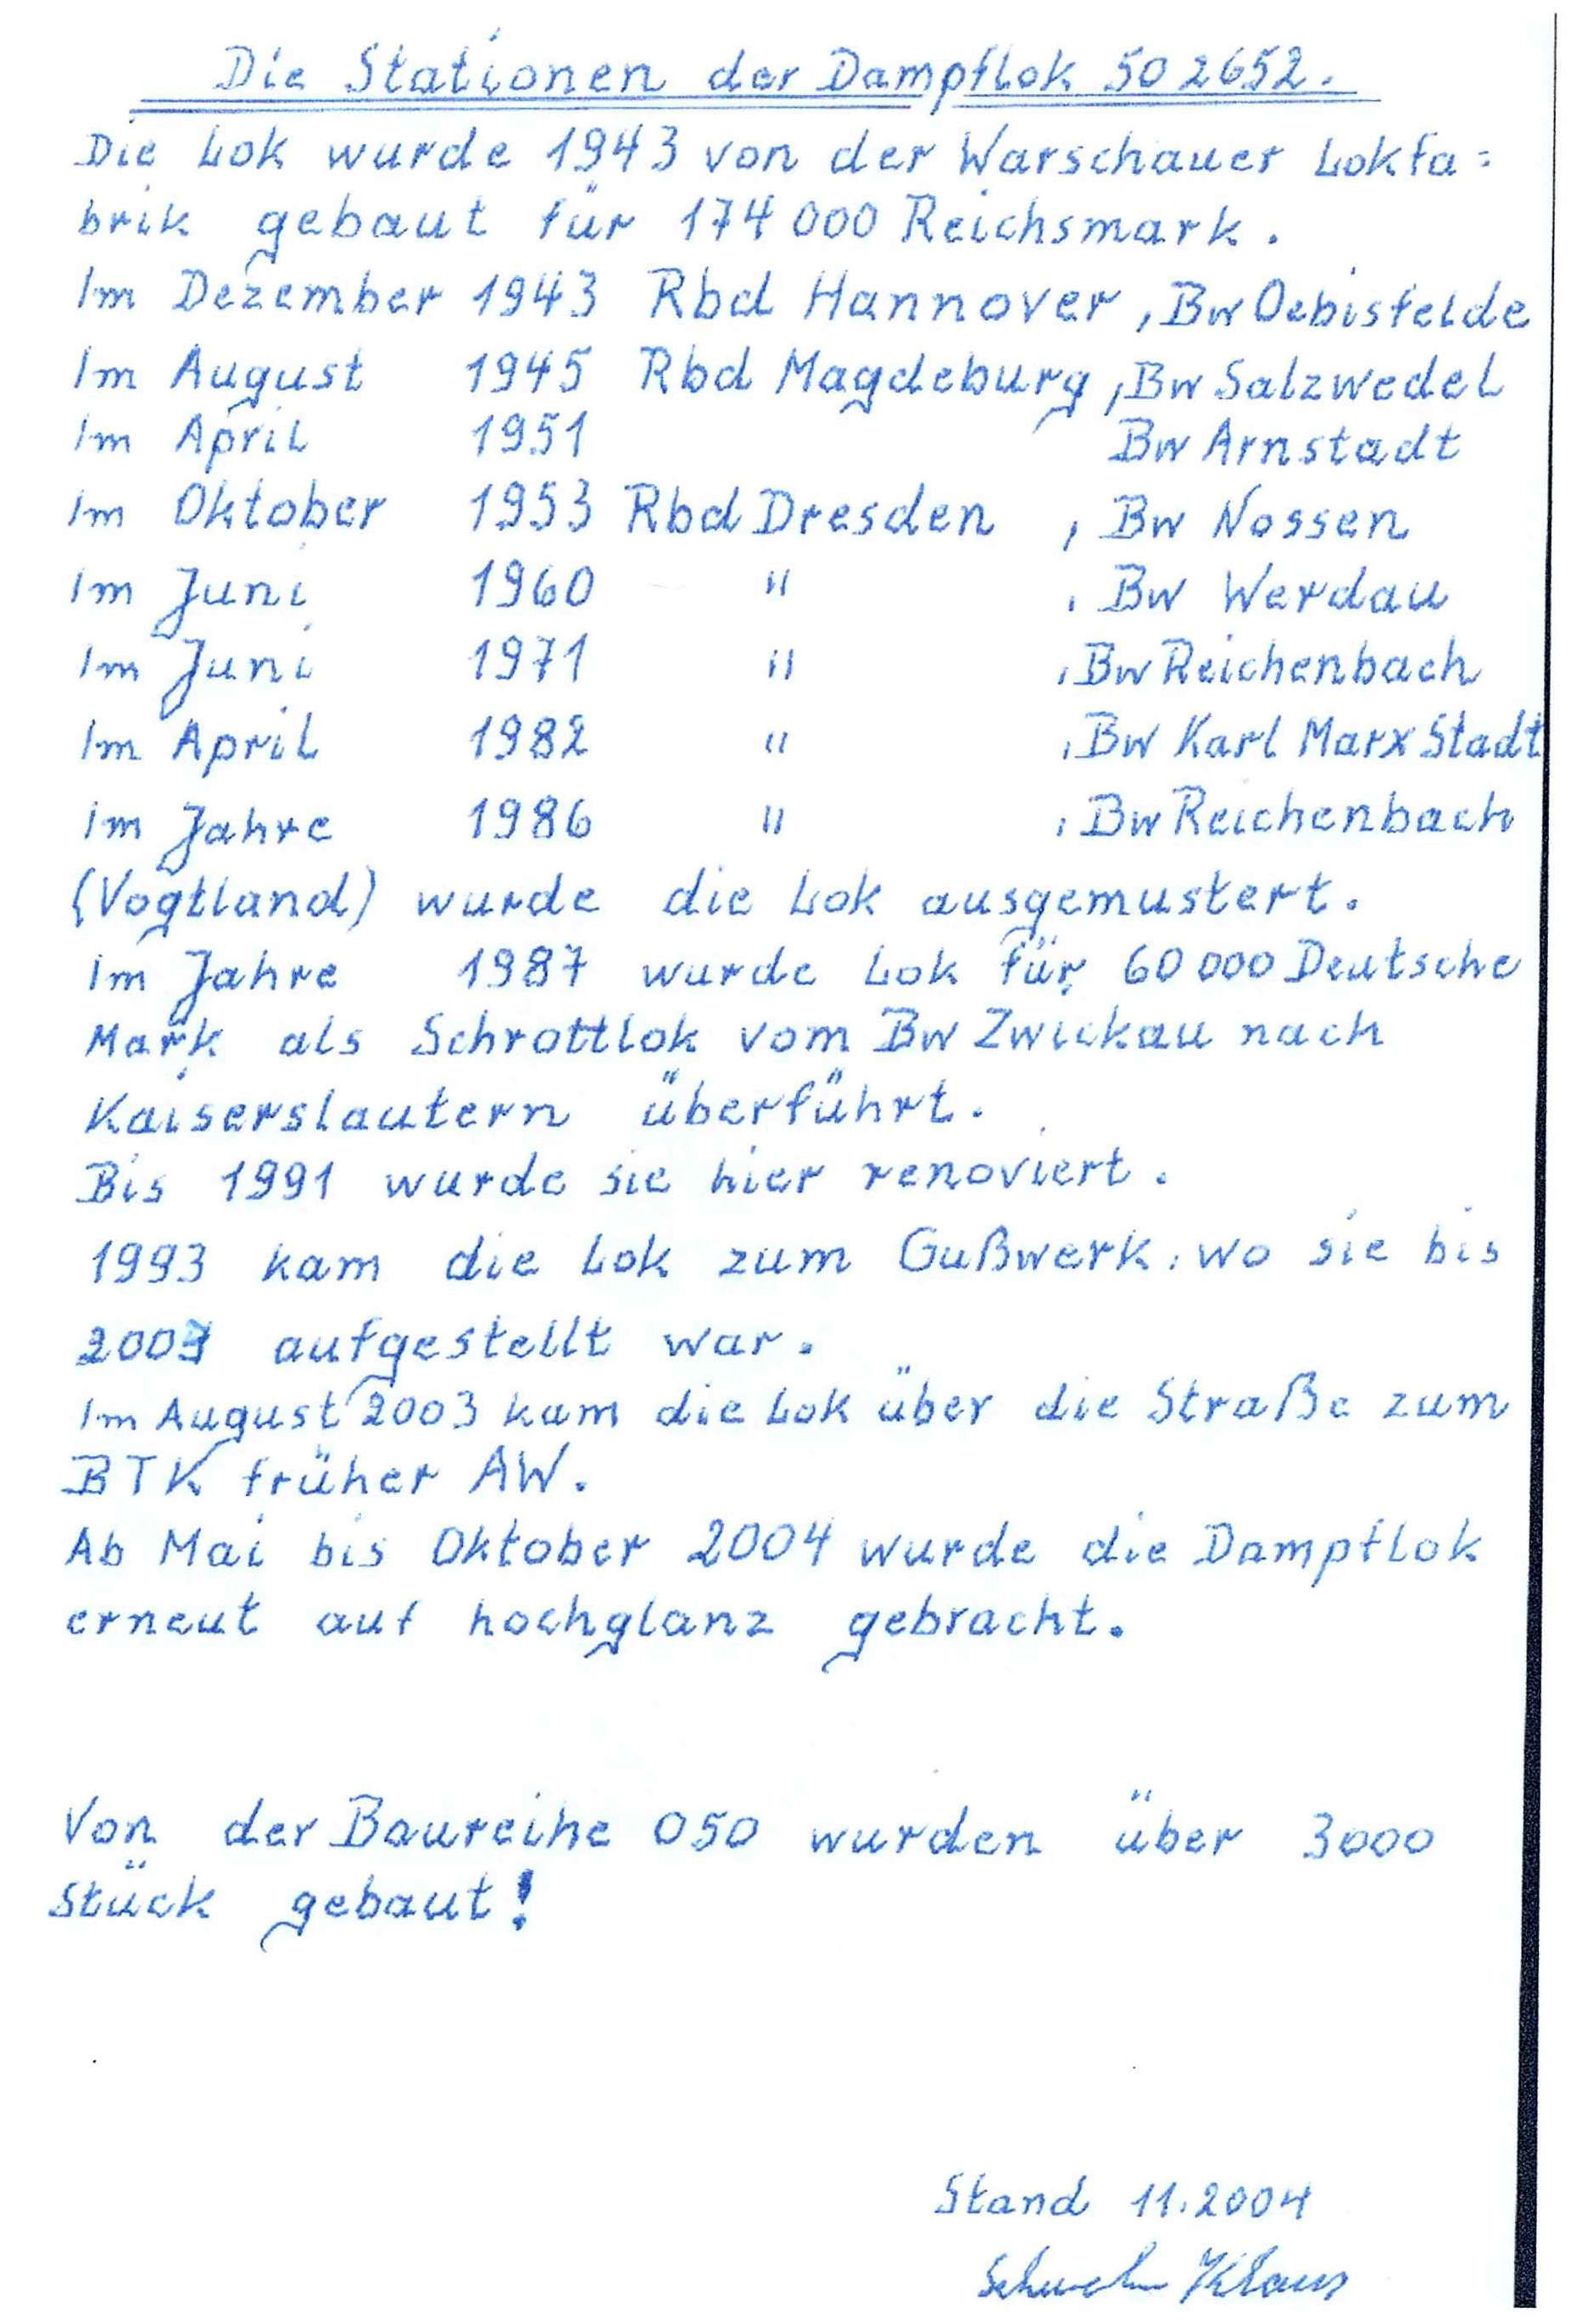 Die Stationen der Dampflok 50 2652.
Die Lok wurde 1943 von der Warschauer Lokfa=
brik gebaut für 174 000 Reichsmark.
Im Dezember 1943 Rbd Hannover, Bw Oebisfelde
Im August 1945 Rbd Magdeburg, Bw Salzwedel
Im April 1951 Bw Arnstadt
Im Oktober 1953 Rbd Dresden, Bw Nossen
Im Juni 1960 " , Bw Werdau
Im Juni 1971 " , Bw Reichenbach
Im April 1982 " , Bw Karl Marx Stadt
im Jahre 1986 " , Bw Reichenbach
(Vogtland) wurde die Lok ausgemustert.
im Jahre 1987 wurde Lok für 60 000 Deutsche
Mark als Schrottlok vom Bw Zwickau nach
Kaiserslautern überführt.
Bis 1991 wurde sie hier renoviert.
1993 kam die Lok zum Gußwerk, wo sie bis
aufgestellt war.
Im August 2003 kam die Lok über die Straße zum
BTK früher AW.
Ab Mai bis Oktober 2004 wurde die Dampflok
erneut auf hochglanz gebracht.
Von der Baureihe 050 wurden über 3000
Stück gebaut!
Stand 11.2004
Klaus